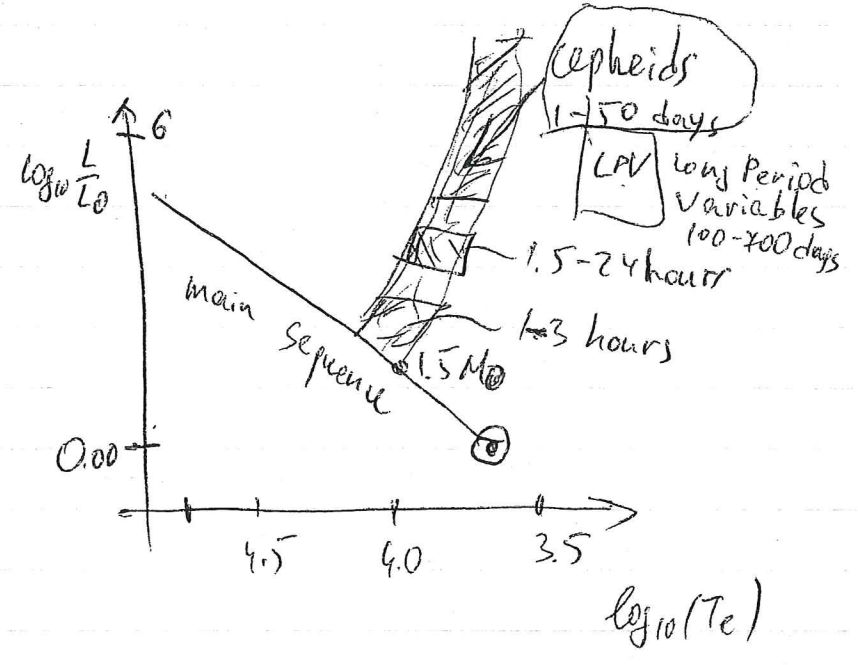 Cepheids
1-50 days
6
log₁₀ L/L⊙
LPV
Long Period
Variables
100-700 days
1.5-24 hours
1-3 hours
main sequence
1.5 M⊙
0.00
4.5
4.0
3.5
log₁₀(Te)